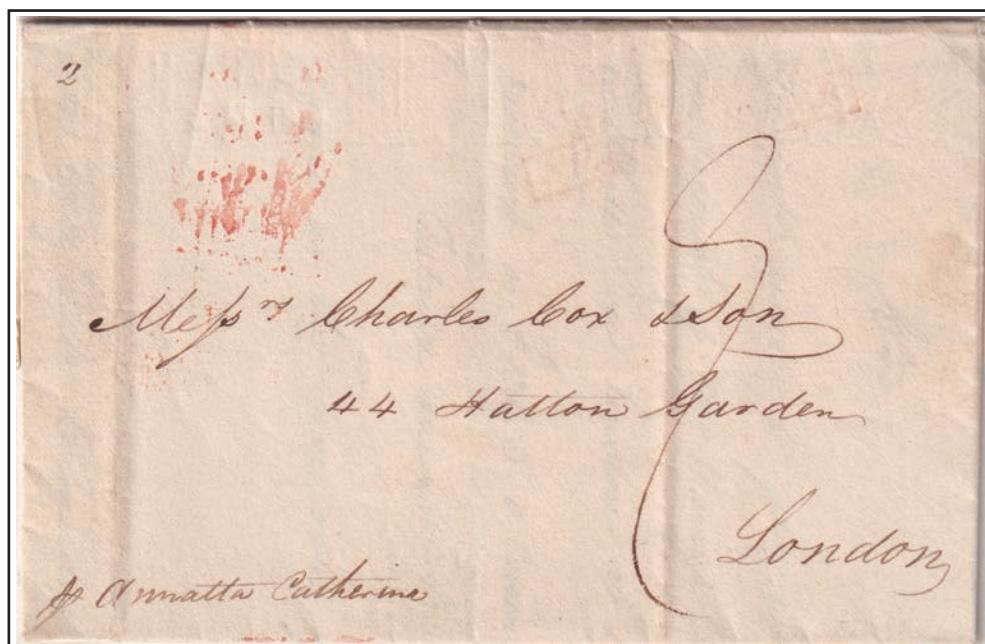 2
Messrs Charles Cox & Son
44 Hatton Garden
London
pr Annatta Catherina